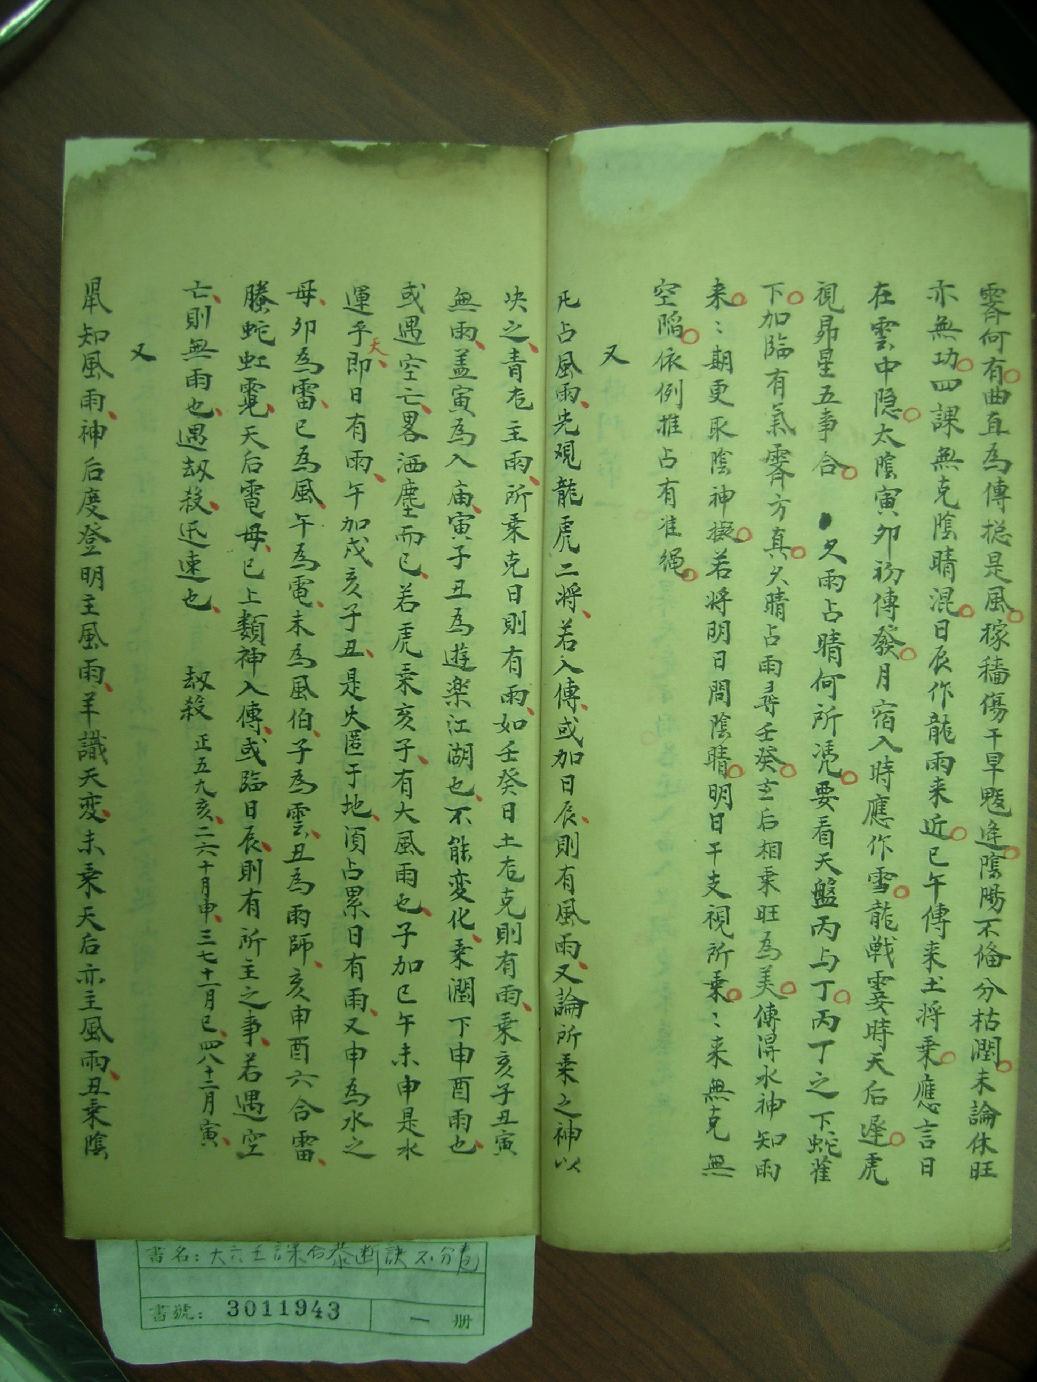 霽何有曲直為傳捴是風稼穡傷干旱魃逢陰陽不偹分枯潤未論休旺
亦無功四課無克陰晴混日辰作龍雨来近巳午傳来土将乗應言日
在雲中隐太陰寅夘初傳發月宿入時應作雪龍戦霎時天后遲虎
視昴星五事合 久雨占晴何所凴要看天盤丙与丁丙丁之下蛇雀
下加臨有氣霽方真久晴占雨尋壬癸玄后相乗旺為美傳得水神知雨
来〻期更取陰神擬若将明日問陰晴明日干支視所乗〻来無克無
空陷依例推占有准繩
又
凡占風雨先覌龍虎二将若入傳或加日辰則有風雨又論所乗之神以
决之青龙主雨所乗克日則有雨如壬癸日土龙克則有雨乗亥子丑寅
無雨盖寅為入庙寅子丑為遊楽江湖也不能変化乗潤下申酉雨也
或遇空亡畧洒塵而已若虎乗亥子有大風雨也子加巳午未申是水
運乎天即日有雨午加戌亥子丑是火匿于地湏占累日有雨又申為水之
母夘為雷巳為風午為電未為風伯子為雲丑為雨師亥申酉六合雷
螣蛇虹霓天后電母已上類神入傳或臨日辰則有所主之事若遇空
亡則無雨也遇刼殺迅速也 刼殺 正五九亥二六十月申三七十一月巳四八十二月寅
又
巽知風雨神后度登明主風雨羊識天变未乗天后亦主風雨丑乗陰
書名：大六壬課合叅断訣不分卷
書號：3011943 一册